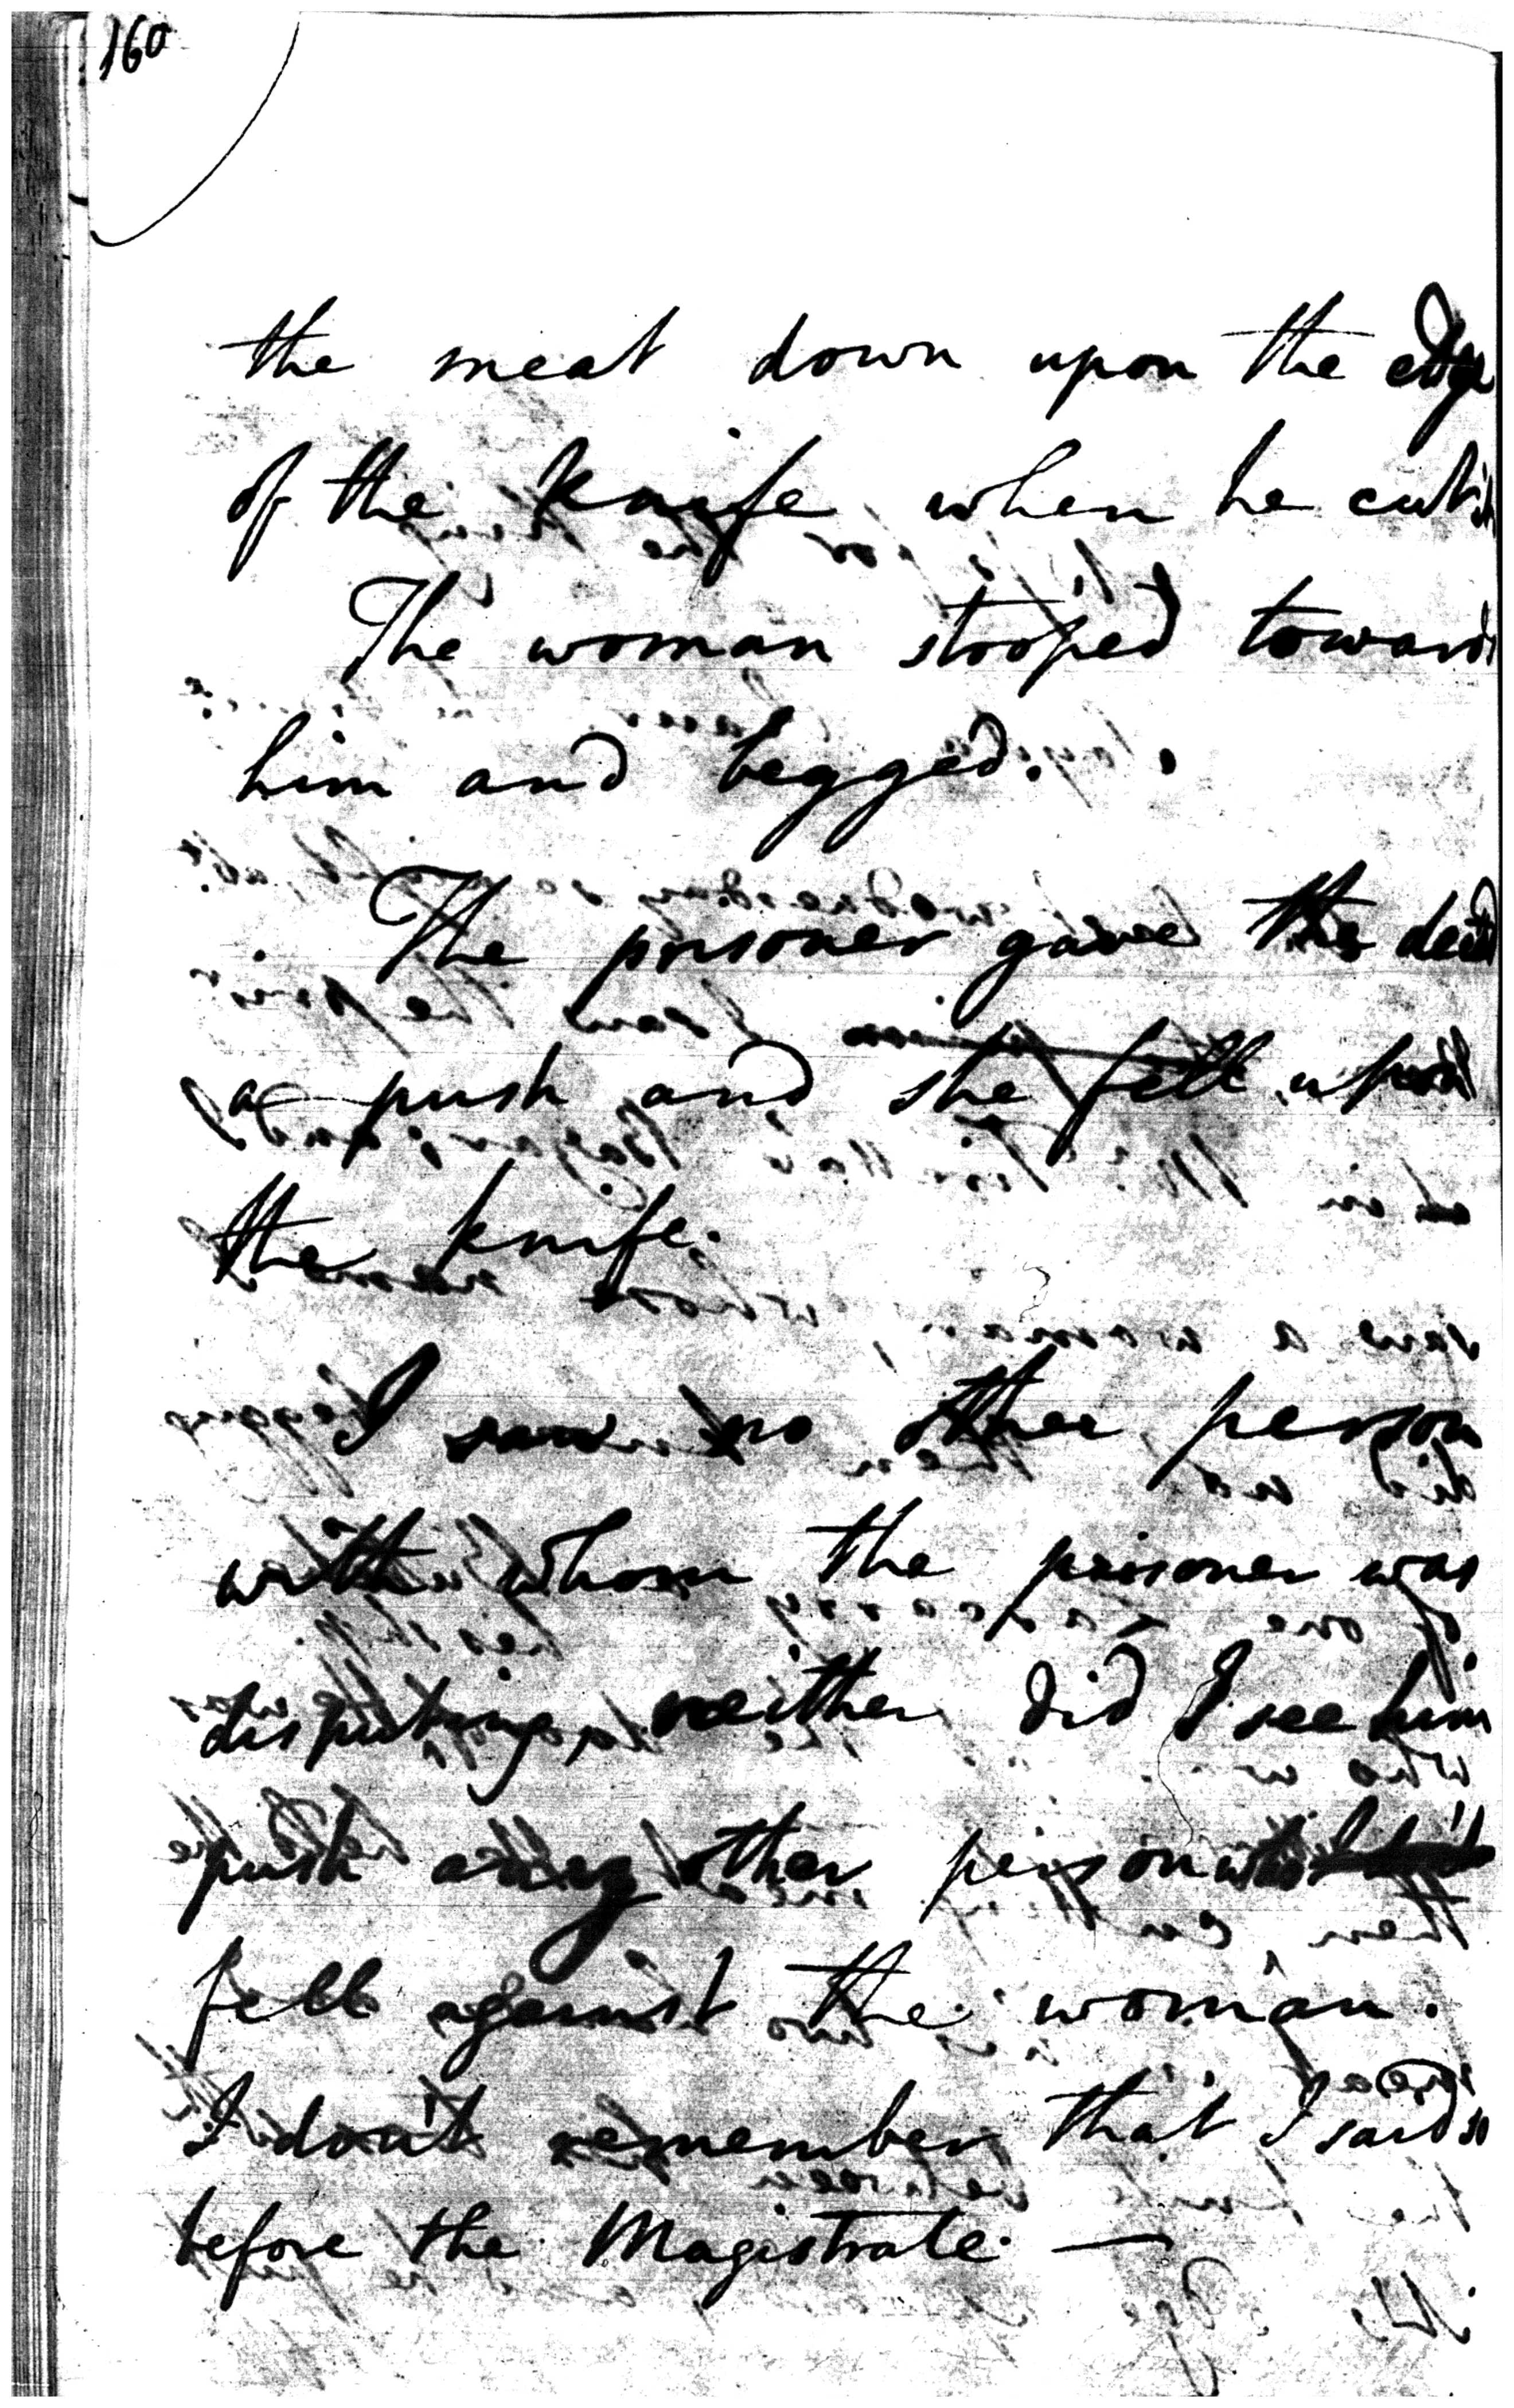 160
the meat down upon the edge
of the knife when he cut it
The woman stooped towards
him and begged.
The prisoner gave the deced
a push and she fell upon
the knife.
I saw no other person
with whom the prisoner was
disputing neither did I see him
push any other person
fell against the woman.
I don't remember that I said so
before the Magistrate. —